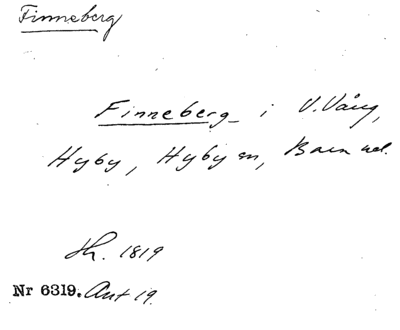 Finneberg
Finneberg i V. Vång,
Hyby, Hyby sn, Bara hd.
Th. 1819
Nr 6319. Ant 19.